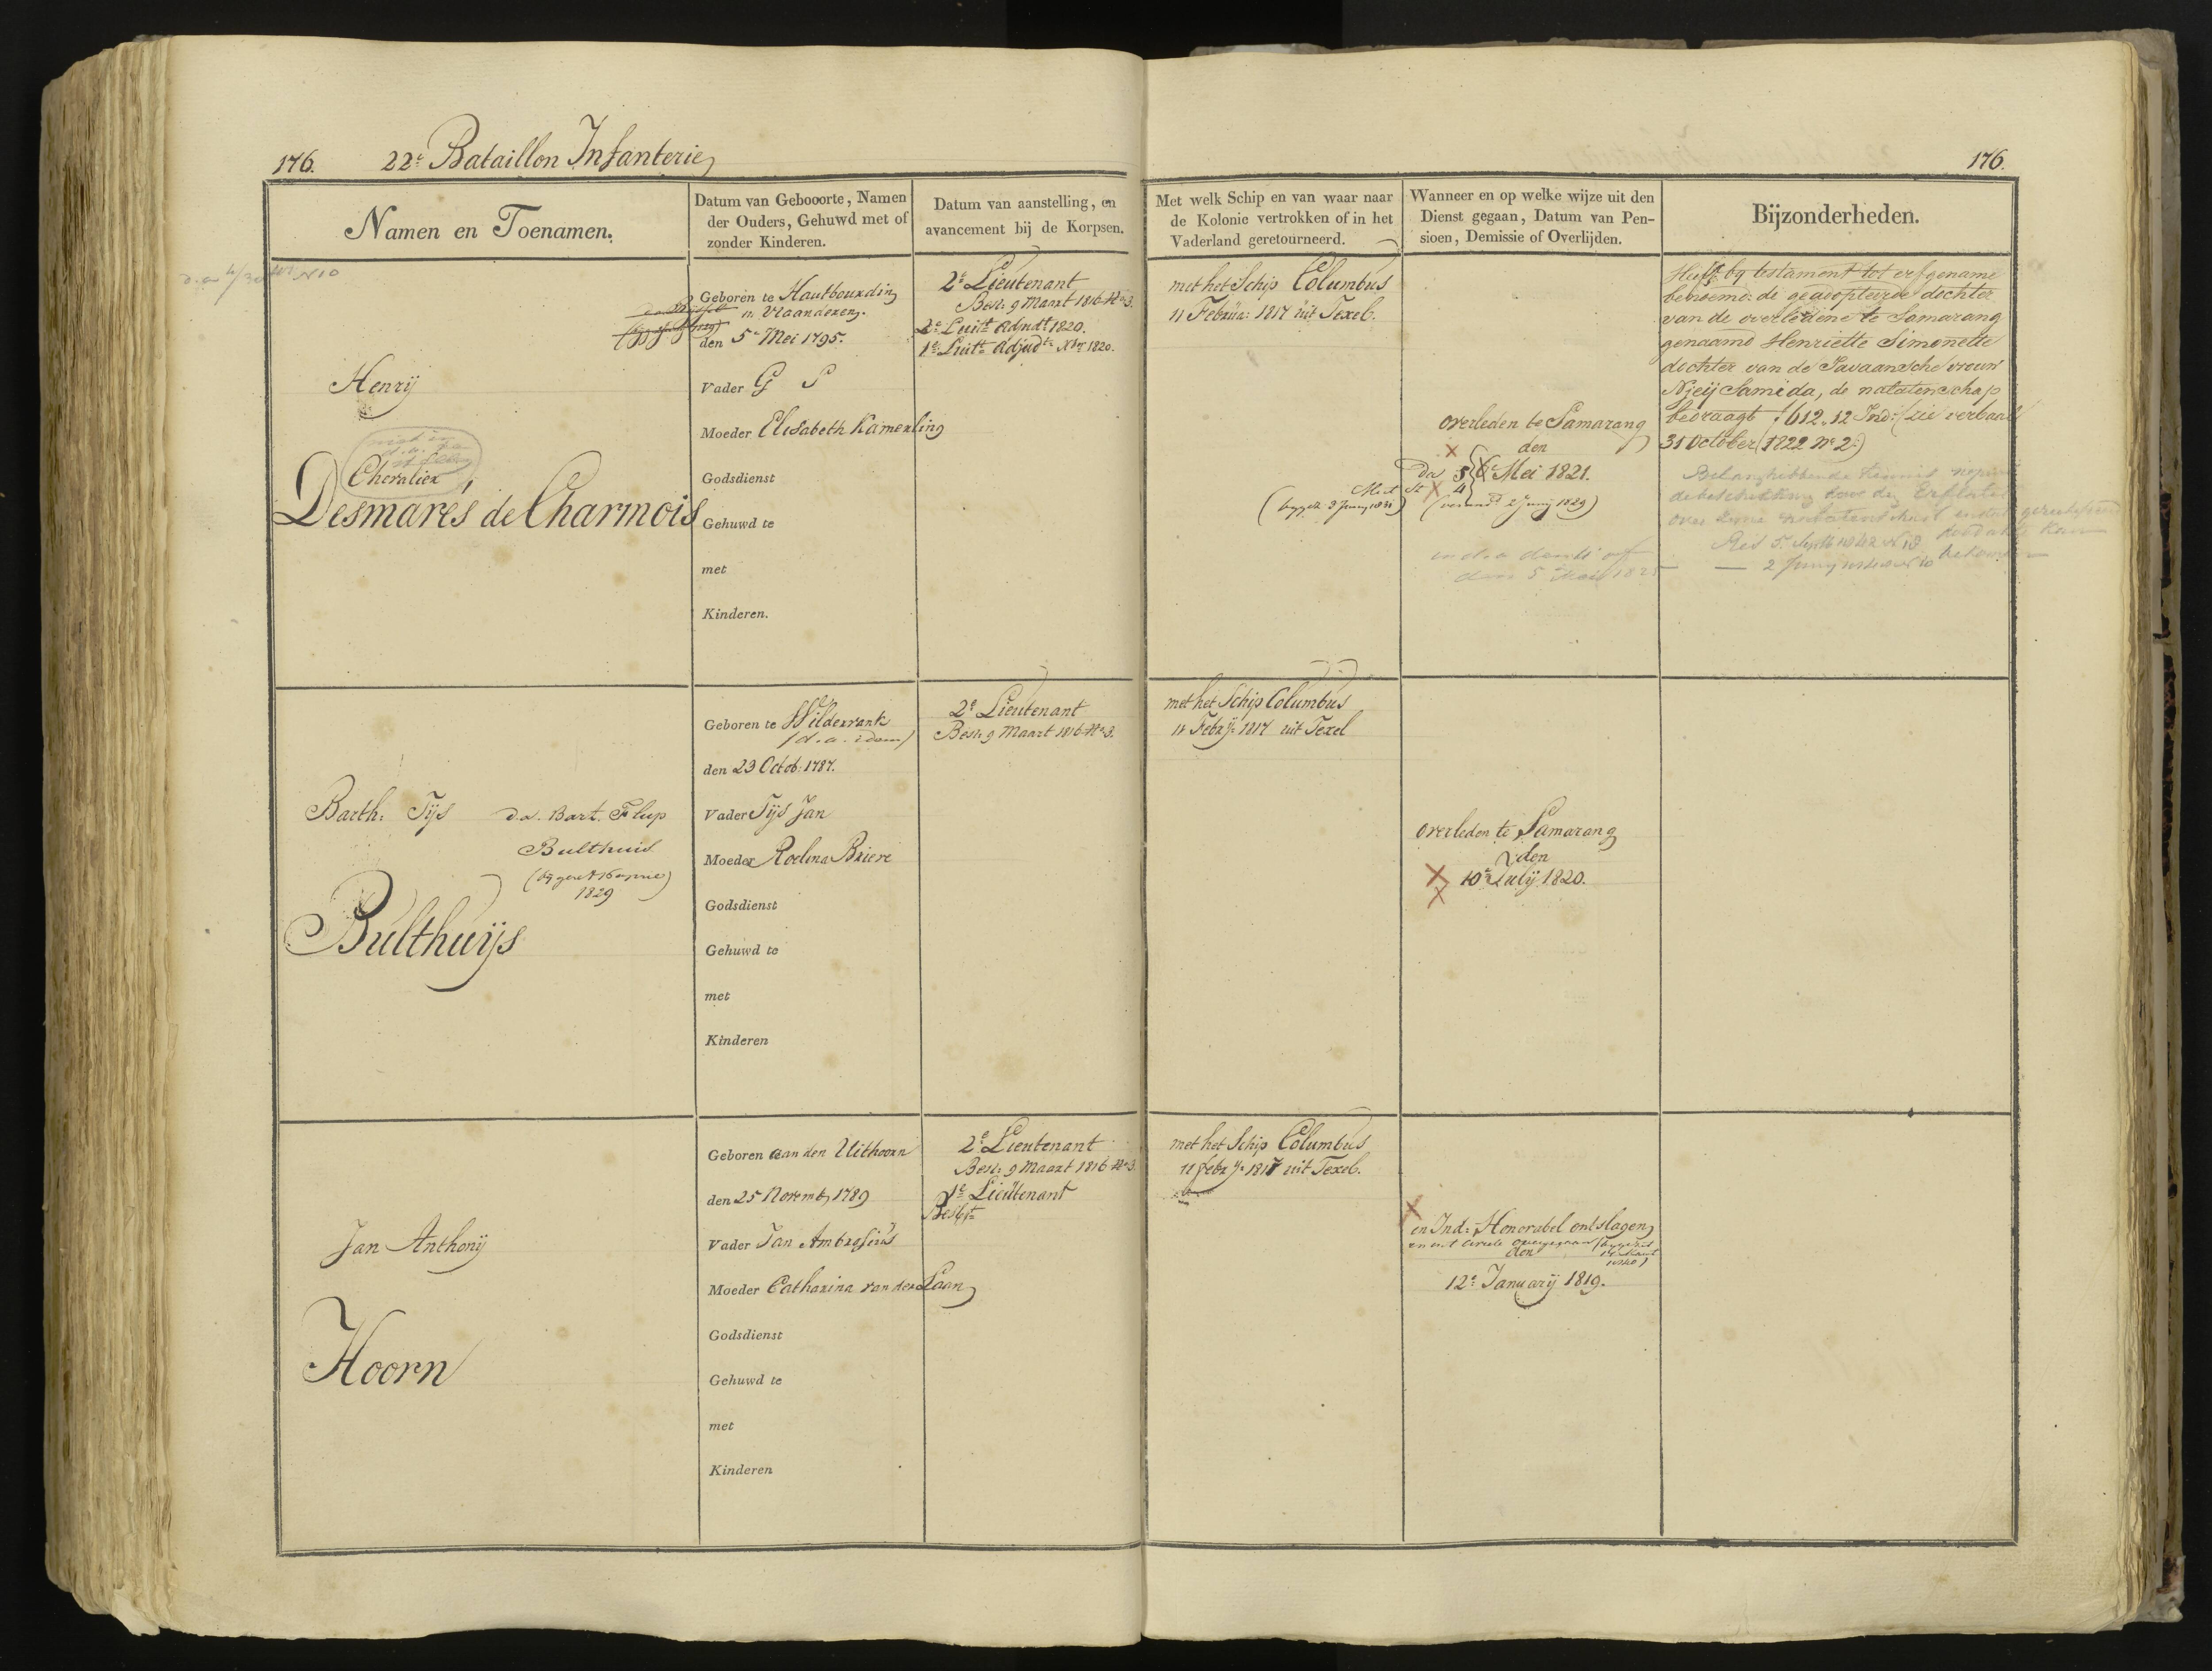 176. 22e Bataillon Infanterie
176.
Namen en Toenamen.
Datum van Gebooorte, Namen
der Ouders, Gehuwd met of
zonder Kinderen.
Datum van aanstelling, en
avancement bij de Korpsen.
Met welk Schip en van waar naar
de Kolonie vertrokken of in het
Vaderland geretourneerd.
Wanneer en op welke wijze uit den
Dienst gegaan, Datum van Pen-
sioen, Demissie of Overlijden.
Bijzonderheden.
Henrij
Chevalier
Desmarés de Charmois
Geboren te Hautbourding
in Vlaanderen.
den 5e Mei 1795.
Vader G S
Moeder Elisabeth Kamerling
Godsdienst
Gehuwd te
met
Kinderen.
2e Lieutenant
Besl. 9 Maart 1816 No 3.
2e Luitt Adjudt 1820.
1e Luitt Adjudt Xbr 1820.
met het Schip Columbus
11 Februa: 1817 uit Texel.
overleden te Samarang
den
6e Mei 1821.
Heeft by testament tot erfgename
benoemd: de geadopteerde dochter
van de overledene te Samarang
genaamd Henriette Simonette
dochter van de Javaansche vrouw
Njeij Samida, de nalatenschap
bedraagt f 612.12 Ind: (zie verbaal
31 October 1822 No 2.)
Barth: Tijs
d.a. Bart. Flup
Bulthuis
1829
Bulthuijs
Geboren te Wildervank
(d.a. idem)
den 23 Octob: 1787.
Vader Tijs Jan
Moeder Roelina Briere
Godsdienst
Gehuwd te
met
Kinderen
2e Lieutenant
Besl. 9 Maart 1816 No 3.
met het Schip Columbus
11 Febry: 1817 uit Texel
overleden te Samarang
den
10e Julij 1820.
Jan Anthonij
Hoorn
Geboren aan den Uithoorn
den 25 Novemb, 1789
Vader Jan Ambrosius
Moeder Catharina van der Laan
Godsdienst
Gehuwd te
met
Kinderen
2e Lieutenant
Besl. 9 Maart 1816 No 3.
1e Lieutenant
met het Schip Columbus
11 febry: 1817 uit Texel.
in Ind: Honorabel ontslagen
den
12e Januarij 1819.